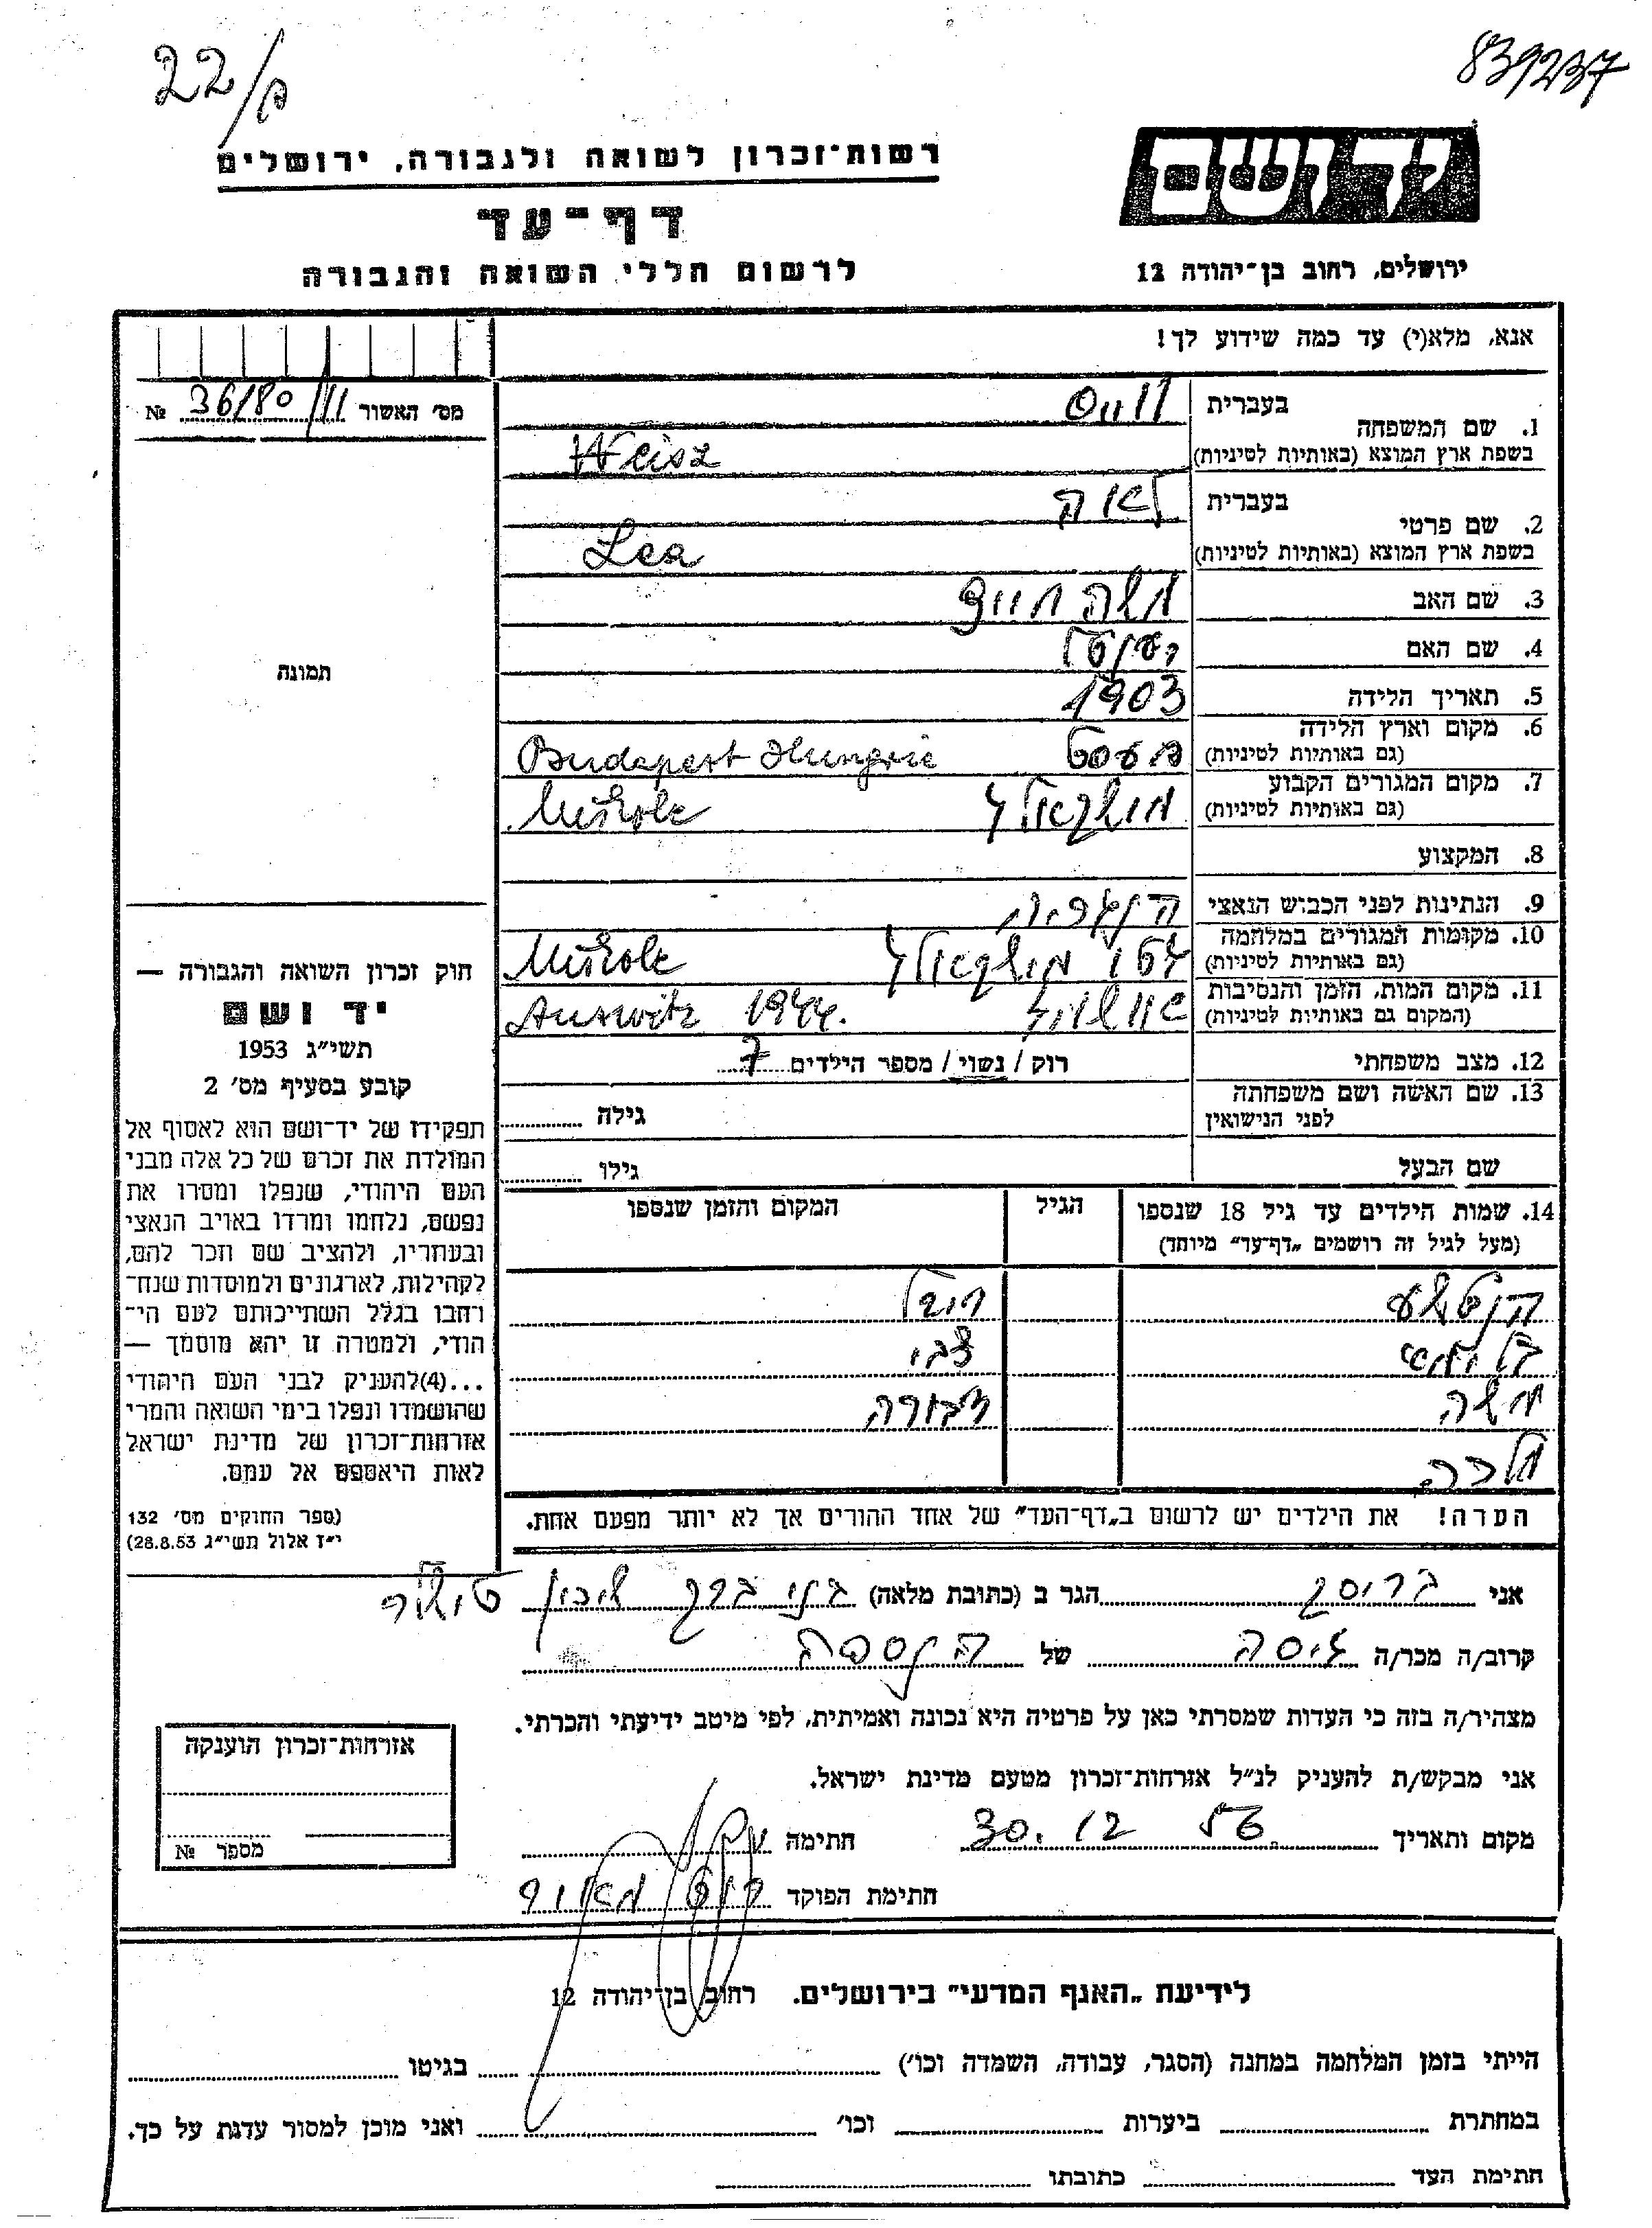 22/פ
839237
יד ושם
ירושלים, רחוב בן־יהודה 12
רשות־זכרון לשואה ולגבורה, ירושלים
דף־עד
לרשום חללי השואה והגבורה
אנא, מלא(י) עד כמה שידוע לך!
מס׳ האשור 36/80 № 
תמונה
1. שם המשפחה
בעברית
ווייס
בשפת ארץ המוצא (באותיות לטיניות)
Weisz
2. שם פרטי
בעברית
לאה
בשפת ארץ המוצא (באותיות לטיניות)
Lea
3. שם האב
משה חיים
4. שם האם
5. תאריך הלידה
1903
6. מקום וארץ הלידה
(גם באותיות לטיניות)
Budapest Hungrie
7. מקום המגורים הקבוע
(גם באותיות לטיניות)
מישקאלץ
Miškolc
8. המקצוע
9. הנתינות לפני הכבוש הנאצי
הונגריה
10. מקומות המגורים במלחמה
(גם באותיות לטיניות)
גטו מישקאלץ
Miškolc
11. מקום המות, הזמן והנסיבות
(המקום גם באותיות לטיניות)
Auswitz 1944.
12. מצב משפחתי
רוק / נשוי / מספר הילדים 7
13. שם האשה ושם משפחתה
לפני הנישואין
גילה
שם הבעל
גילו
14. שמות הילדים עד גיל 18 שנספו
(מעל לגיל זה רושמים „דף־עד״ מיוחד)
הגיל
המקום והזמן שנספו
צבי
משה
דבורה
מלכה
הערה! את הילדים יש לרשום ב„דף־העד״ של אחד ההורים אך לא יותר מפעם אחת.
חוק זכרון השואה והגבורה —
יד ושם
תשי״ג 1953
קובע בסעיף מס׳ 2
תפקידו של יד־ושם הוא לאסוף אל
המולדת את זכרם של כל אלה מבני
העם היהודי, שנפלו ומסרו את
נפשם, נלחמו ומרדו באויב הנאצי
ובעוזריו, ולהציב שם וזכר להם,
לקהילות, לארגונים ולמוסדות שנח־
רחבו בגלל השתייכותם לעם הי־
הודי, ולמטרה זו יהא מוסמך —
...(4)להעניק לבני העם היהודי
שהושמדו ונפלו בימי השואה והמרי
אזרחות־זכרון של מדינת ישראל
לאות היאספם אל עמם.
(ספר החוקים מס׳ 132
י״ז אלול תשי״ג 28.8.53)
אני הגר ב (כתובת מלאה) בני ברק שיכון
קרוב/ה מכר/ה גיסה של הנספה
מצהיר/ה בזה כי העדות שמסרתי כאן על פרטיה היא נכונה ואמיתית, לפי מיטב ידיעתי והכרתי.
אני מבקש/ת להעניק לנ״ל אזרחות־זכרון מטעם מדינת ישראל.
מקום ותאריך 30. 12 חתימה
חתימת הפוקד
אזרחות־זכרון הוענקה
מספר №
לידיעת „האגף המדעי״ בירושלים. רחוב בן־יהודה 12
הייתי בזמן המלחמה במחנה (הסגר, עבודה, השמדה וכו׳) בגיטו
במחתרת ביערות וכו׳ ואני מוכן למסור עדות על כך.
חתימת העד כתובתו